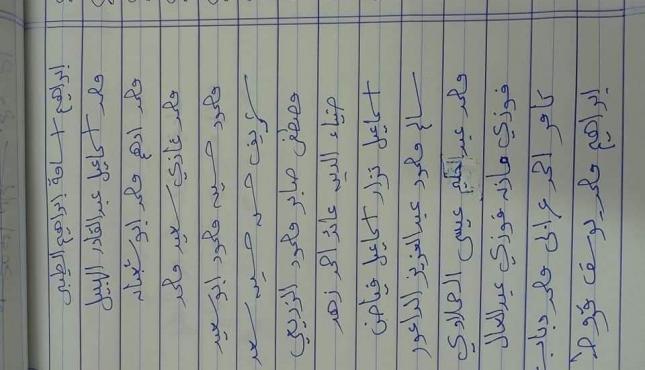 ابراهيم اسامة ابراهيم الطيبي
محمد اسماعيل عبد القادر النبيل
محمد ادهم محمد ابو شعبان
محمد غازي سعيد محمد
محمود حسين محمود ابو سعيد
شريف حسن حسين سعيد
مصطفى صابر محمود الزريعي
ضياء الدين عائد احمد زهد
اسماعيل نزار اسماعيل فياض
سامح محمود عبد العزيز الداعور
محمد عبد عيسى
فوزي مازن فوزي عبد العال
احمد محمد دياب
ابراهيم محمد يوسف